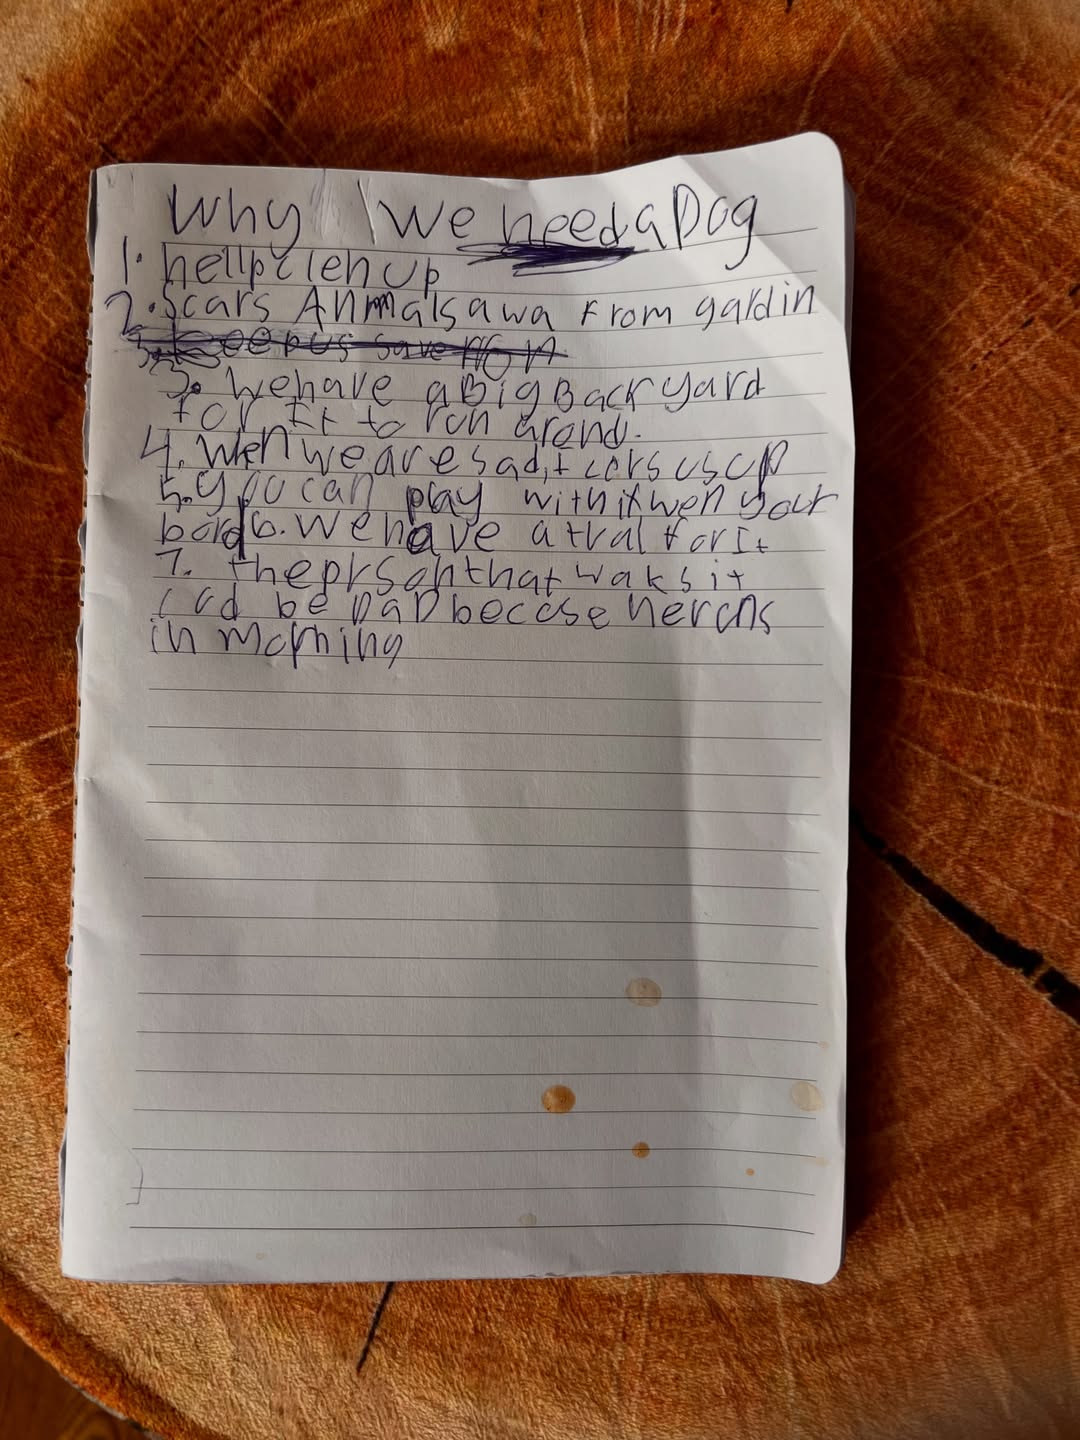 Why We need a Dog
1. hellp clen up
2. Scars Anmals awa From gardin
3. keep us save
3. We have a Big Back yard
for It to run arond.
4. Wen we are sad, it cers us up
5. you can play with it wen your
bord 6. We have a tral for It
7. the prson that waks it
cud be DaD becose he runs
in morning